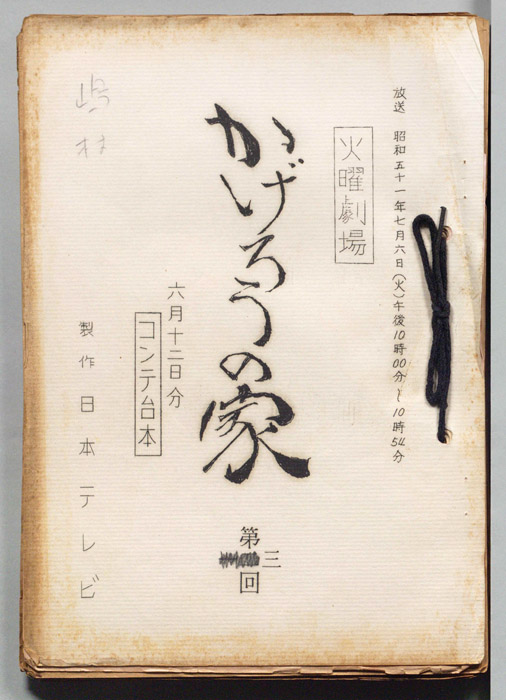 放送 昭和五十一年七月六日(火)午後10時00分~10時54分
火曜劇場
かげろうの家
第三回
六月十二日分
コンテ台本
製作 日本テレビ